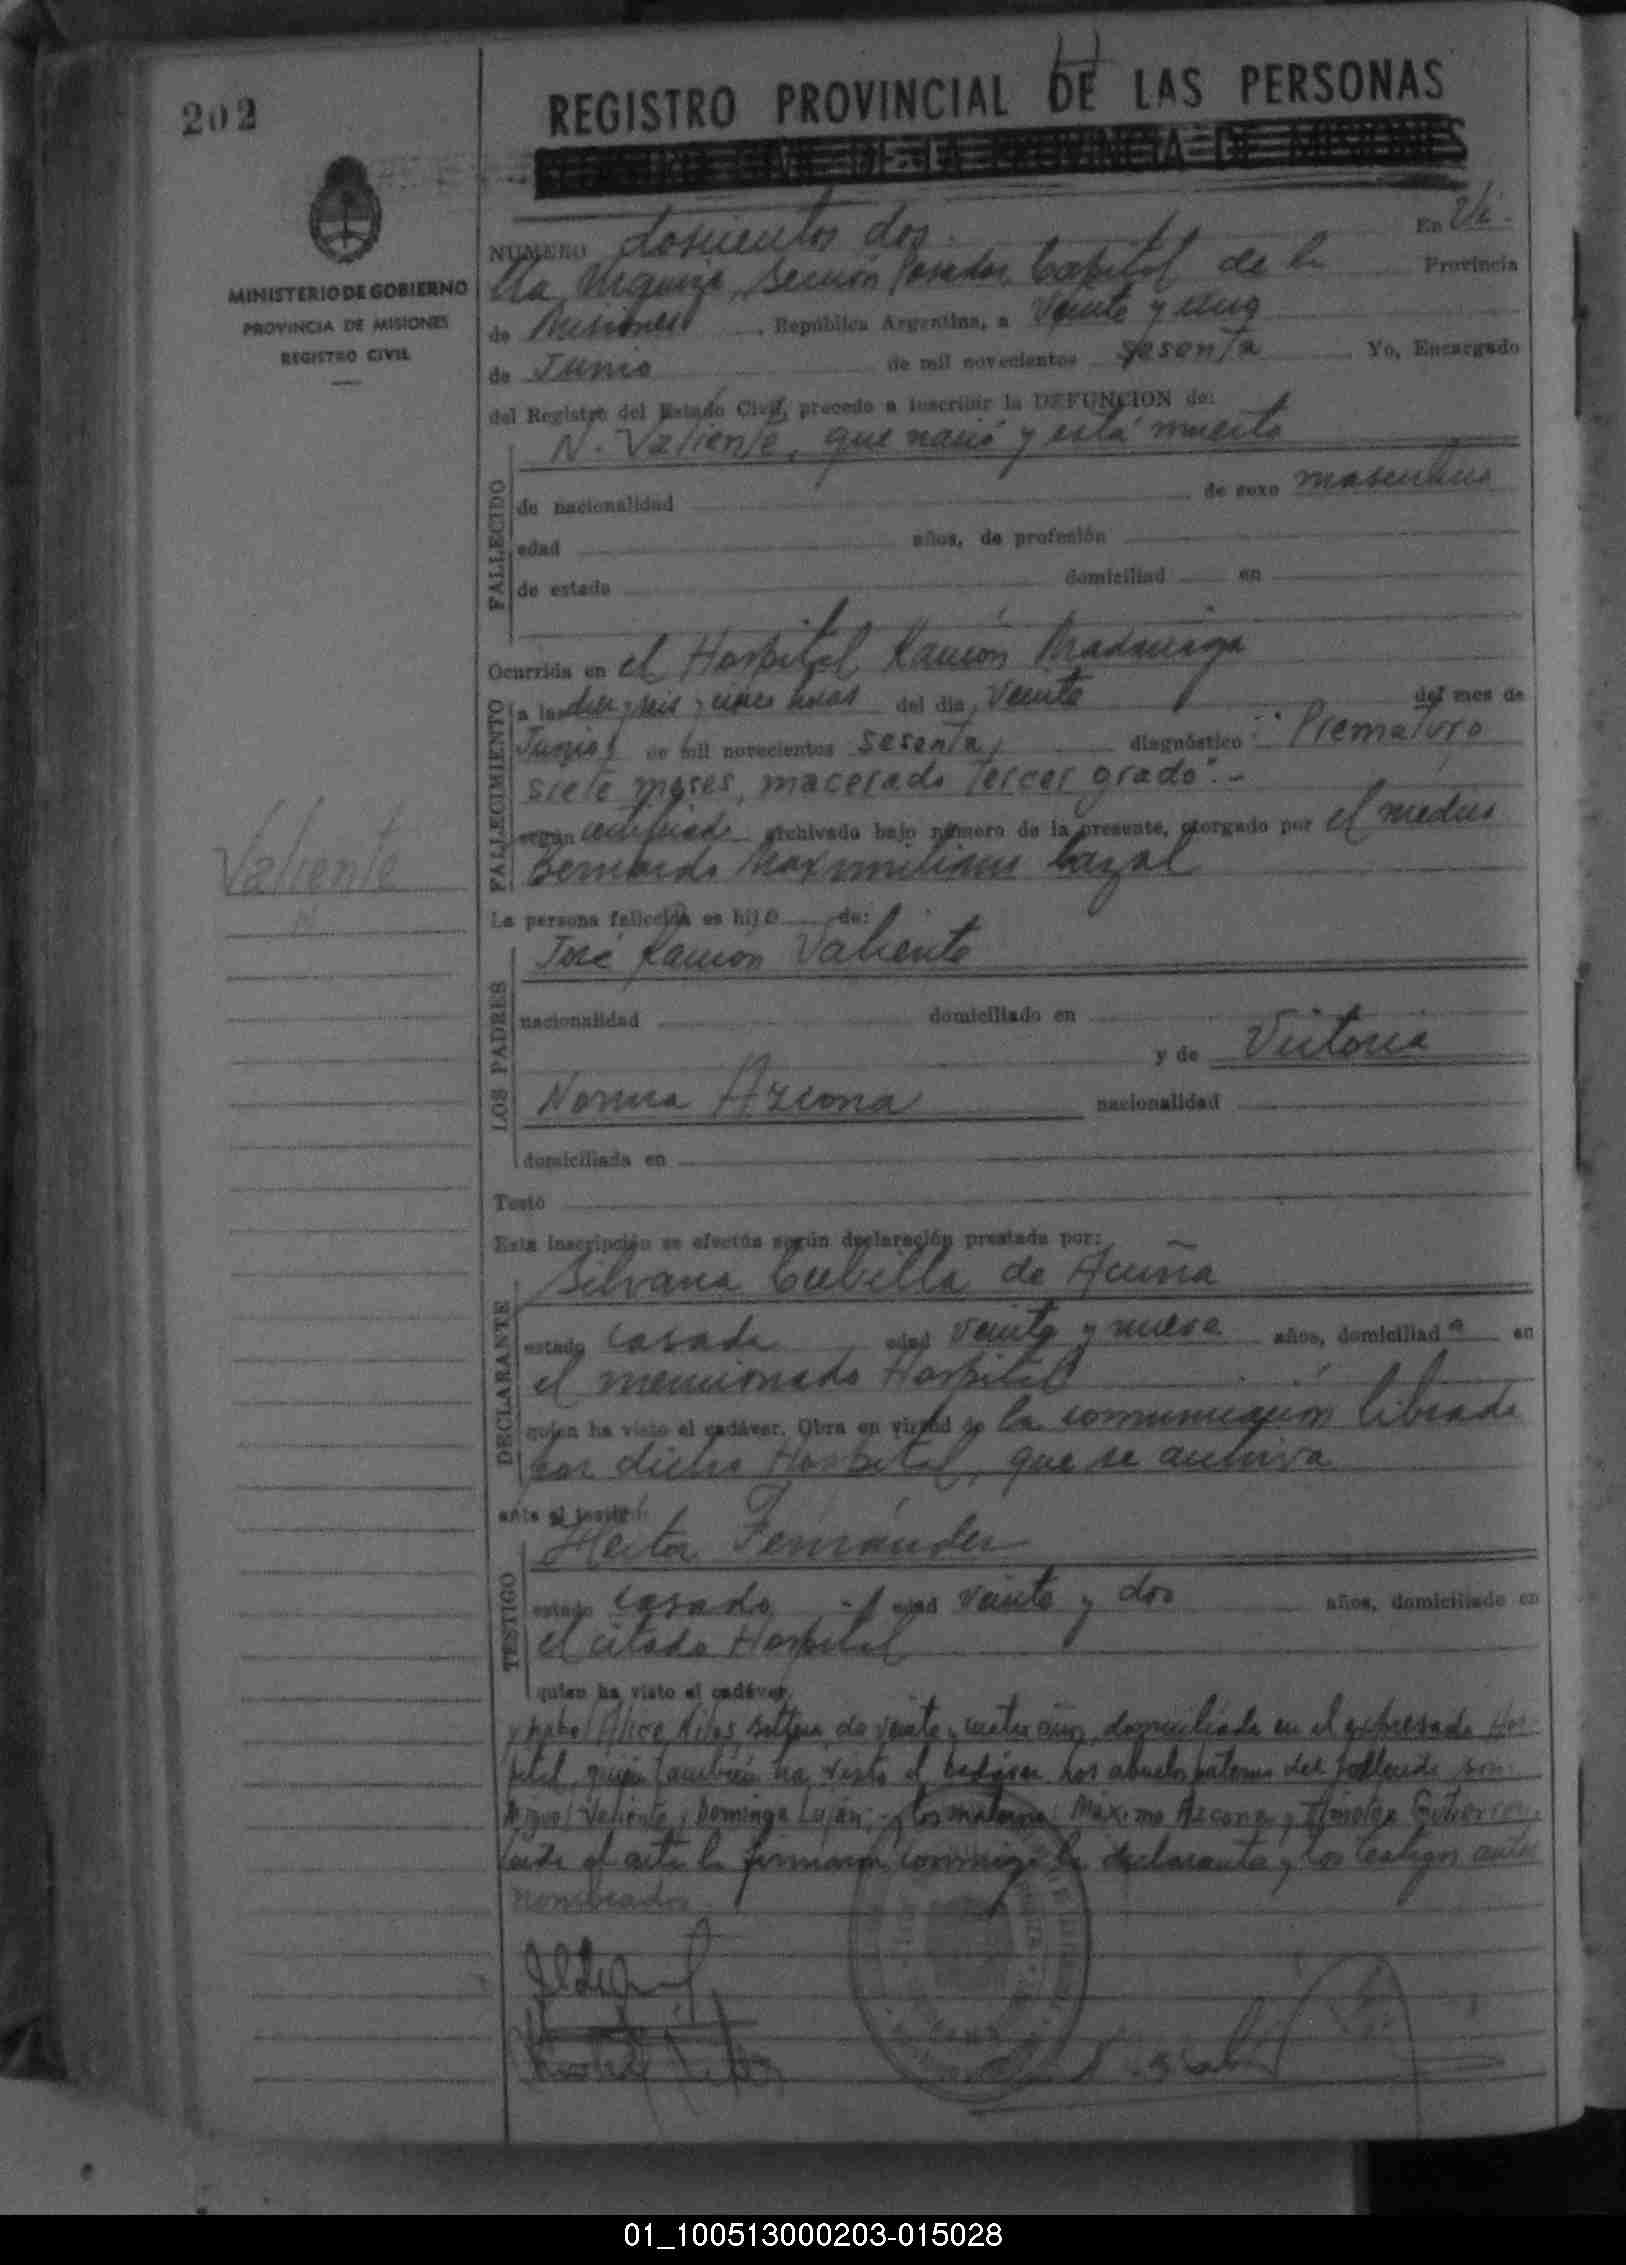 202
REGISTRO PROVINCIAL DE LAS PERSONAS
MINISTERIO DE GOBIERNO
PROVINCIA DE MISIONES
REGISTRO CIVIL
NUMERO doscientos dos. En Vi-
lla Urquiza, Sección Posadas, Capital de la Provincia
de Misiones, República Argentina, a veinte y uno
de Junio de mil novecientos sesenta Yo, Encargado
del Registro del Estado Civil, procedo a inscribir la DEFUNCION de:
N. Valiente, que nació y está muerto
FALLECIDO
de nacionalidad de sexo masculino
edad años, de profesión
de estado domiciliad en
Ocurrida en el Hospital Ramón Madariaga
FALLECIMIENTO
a las diez y seis y cinco horas del dia veinte del mes de
Junio de mil novecientos sesenta, diagnóstico: "Prematuro
siete meses, macerado tercer grado".-
según certificado archivado bajo número de la presente, otorgado por el medico
Bernardo Maximiliano
Valiente
N.
La persona fallecida es hijo de:
José Ramón Valiente
LOS PADRES
nacionalidad domiciliado en
y de Victoria
Norma Azcona nacionalidad
domiciliada en
Testó
Esta inscripción se efectúa según declaración prestada por:
Silvana Cubilla de Acuña
DECLARANTE
estado casada edad veinte y nueve años, domiciliada en
el mencionado Hospital
quien ha visto el cadáver. Obra en virtud de la comunicación librada
por dicho Hospital, que se archiva
ante el testigo:
Hector Fernández
TESTIGO
estado casado edad veinte y dos años, domiciliado en
el citado Hospital
quien ha visto el cadáver.
y Alice soltera de veinte y cuatro años, domiciliada en el expresado Hos-
pital, quien también ha visto el cadáver. Los abuelos paternos del fallecido son:
Miguel Valiente y Dominga Luján; y los maternos: Máximo Azcona y
Leida el acta la firmaron conmigo la declarante y los testigos antes
nombrados.
01_100513000203-015028